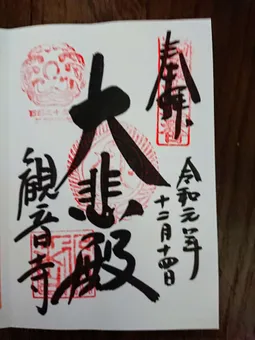 奉拝
令和元年
十二月十四日
大悲殿
観音寺